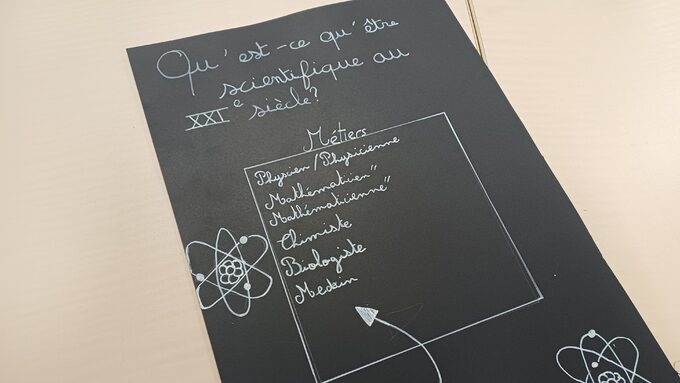 Qu'est-ce qu'être
scientifique au
XXIe siècle?
Métiers
Physicien/Physicienne
Mathématicien"
Mathématicienne"
Chimiste
Biologiste
Medecin